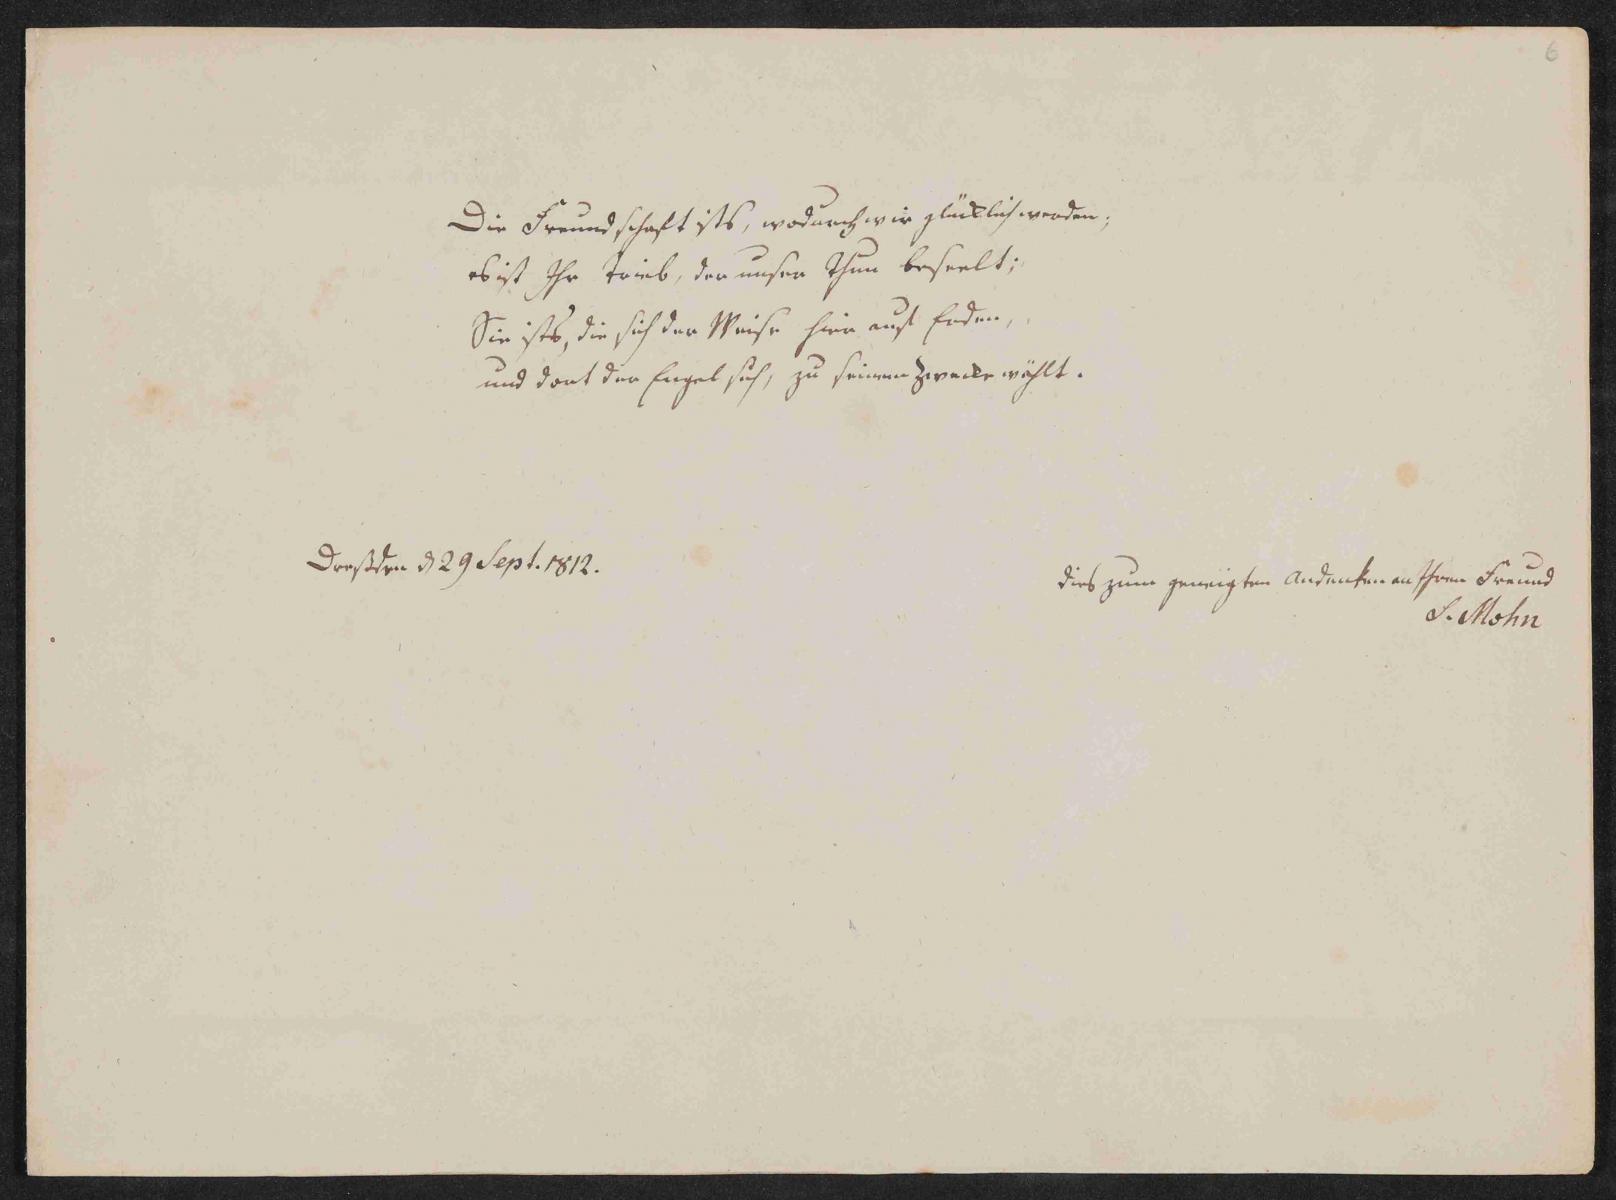 6
Die Freundschaft ists, wodurch wir glücklich werden;
es ist Ihr Trieb, der unser Thun beseelt;
Sie ists, die sich der Weise hier auf Erden,
und dort der Engel sich, zu seinem Zwecke wählt.
Dreßden d 29 Sept. 1812.
dies zum geneigten Andenken an Ihren Freund
S. Mohn